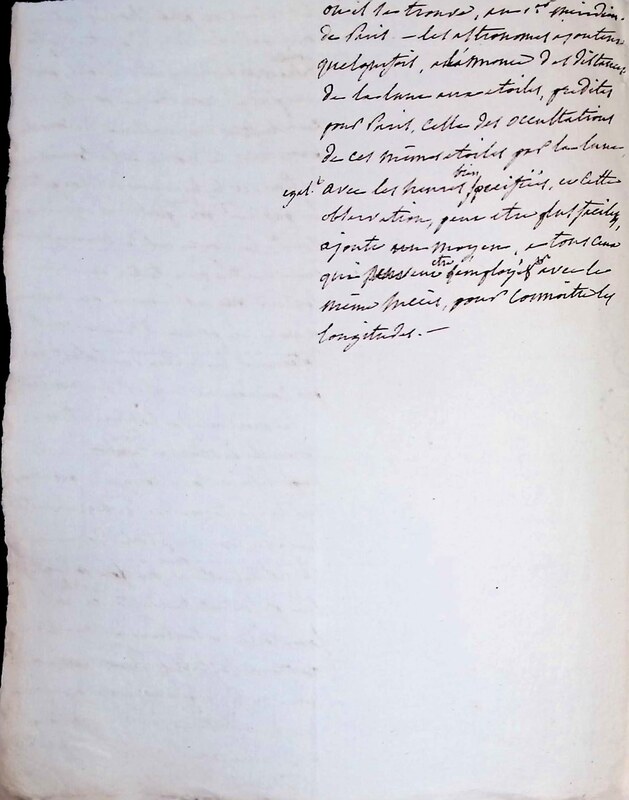 où il se trouve, au 1er méridien
de Paris — les astronomes ajoutent
quelquefois, à l'annonce des distances
de la lune aux étoiles, prédites
pour Paris, celle des occultations
de ces mêmes étoiles par la lune
avec les heures bien précisées, et cette
observation, peut être plus facile,
ajoute un moyen, à tous ceux
qui être employés avec le
même succès, pour connoître les
longitudes. —